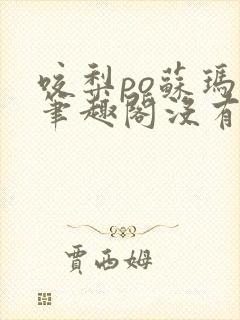 咬梨po蘇瑪
筆趣閣沒有
賈西姆